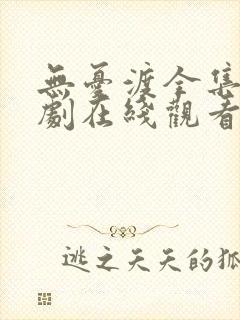 無憂渡全集
劇在綫觀看
逃之天天的狐